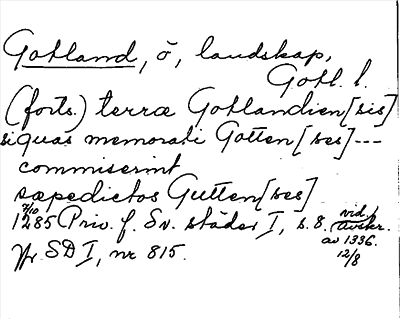 Gotland, ö, landskap,
Gotl. l.
(forts.) terræ Gotlandien[sis]
siquas memorati Gotten[ses]---
commiserint
sæpedictos Gutten[ses]
7/10
1285 Priv. f. Sv. städer I, s. 8. vid. avskr.
av 1336.
12/8
Jfr SD I, nr 815.